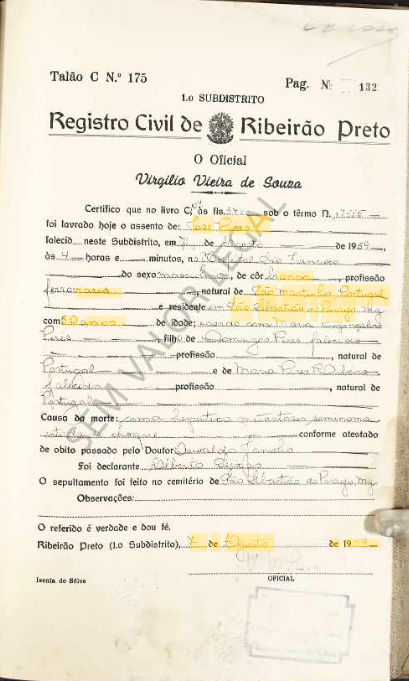 Talão C N.º 175 Pag. Nº 132
1.o SUBDISTRITO
Registro Civil de Ribeirão Preto
O Oficial
Virgilio Vieira de Souza
Certifico que no livro C, ás fls. sob o têrmo N.
foi lavrado hoje o assento de: José Pires
falecid neste Subdistrito, em 7 de Agosto de 1959
ás 4 horas e minutos, no Hospital São Francisco
do sexo masculino, de côr branca, profissão
ferroviario, natural de São Martinho Portugal
e residente em São Sebastião do Paraiso, Mg
com 50 anos de idade; casado com Maria
Pires filho de Domingos Pires falecido
profissão, natural de
Portugal e de Maria Pires Ribeiro
falecida profissão, natural de
Portugal
Causa da morte: coma hepatico metastases seminoma
choque conforme atestado
de obito passado pelo Doutor Oswaldo
Foi declarante Alberto
O sepultamento foi feito no cemitério de São Sebastião do Paraiso, Mg
Observações:
O referido é verdade e dou fé.
Ribeirão Preto (1.o Subdistrito), 7 de Agosto de 1959
Isenta de Sêlos OFICIAL
SEM VALOR LEGAL